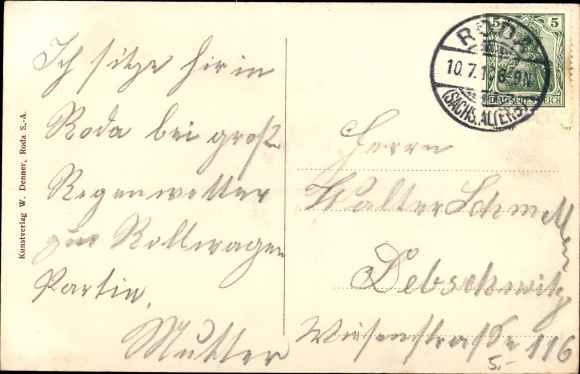 Kunstverlag W. Denner, Roda S.-A.
Ich sitze hir in
Roda bei groß
Regenwetter
zur Rollwagen
Partie.
Mutter
5 5
DEUTSCHES REICH
RODA
10.7.1 8-9N.
(SACHS. ALTENB.)
Herrn
Walter Schmeller
Debschwitz
Wiesenstraße 116